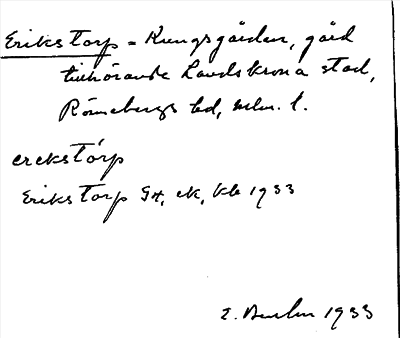 Erikstorp = Kungsgården, gård
tillhörande Landskrona stad,
Rönnebergs hd, Mlm. l.
erekstórp
Erikstorp Gt, ek, kb 1933
1933